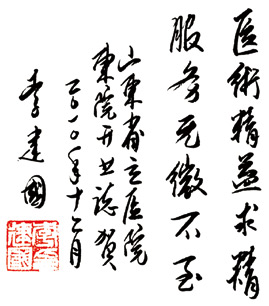 医術精益求精
服务无微不至
山东省立医院
東院开业誌贺
二〇一〇年十二月
李建國